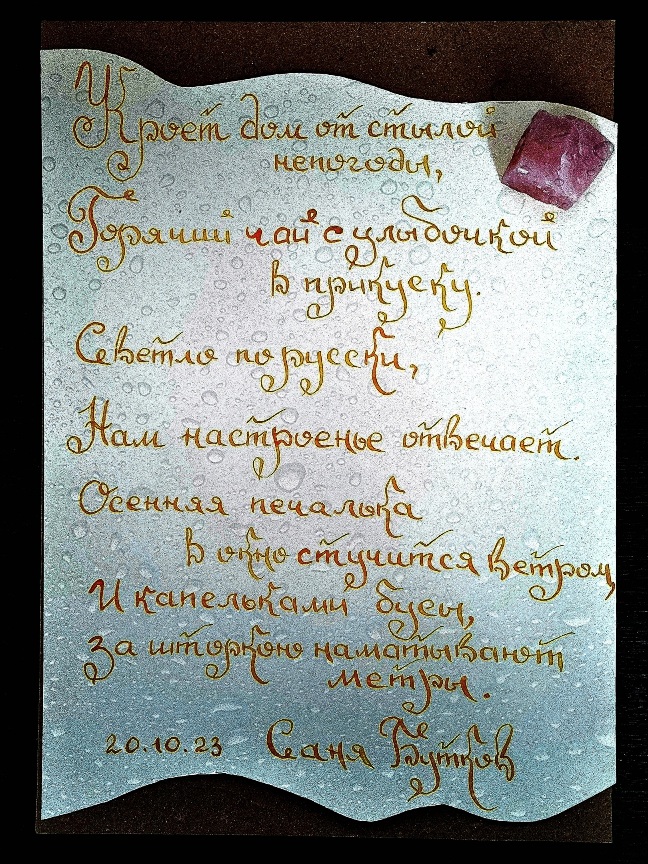 Укроет дом от стылой
непогоды,
Горячий чай с улыбочкой
в прикуску.
Светло по русски,
Нам настроенье отвечает.
Осенняя печалька
в окно стучится ветром,
И капельками бусы,
за шторкою наматывают
метры.
20.10.23 Саня Бутков